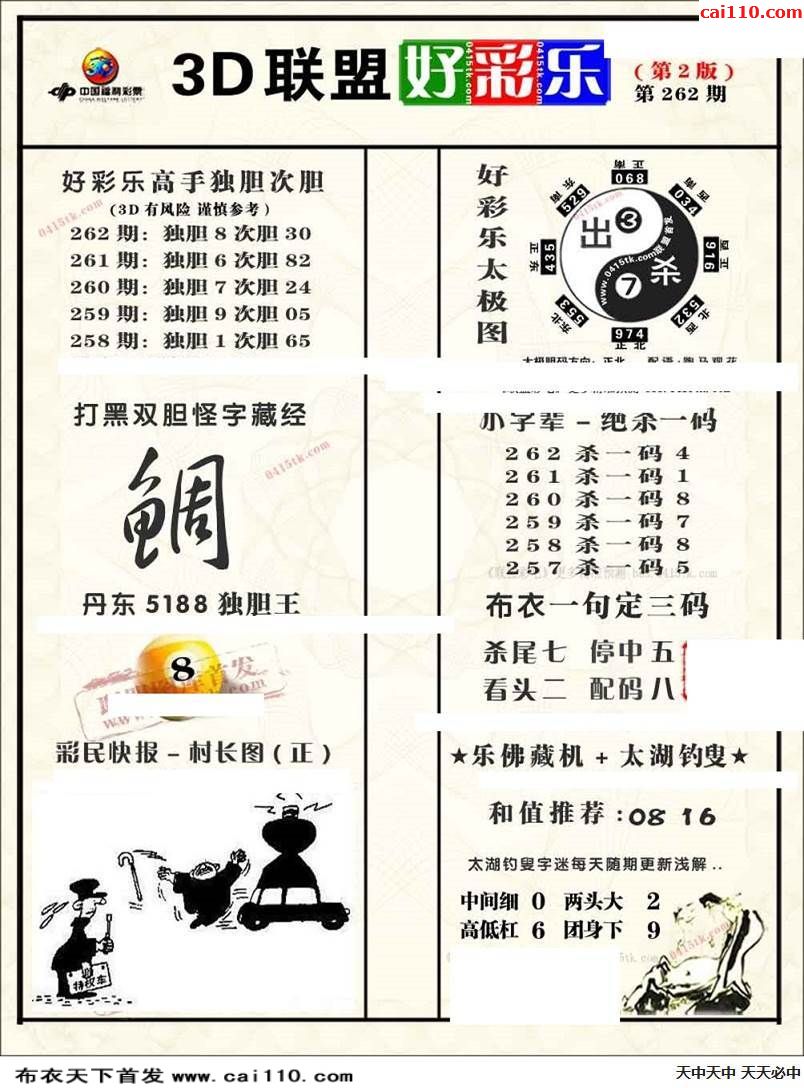 cai110.com
中国福利彩票
CHINA WELFARE LOTTERY
3D联盟
好彩乐
0415tk.com
0415tk.com
(第2版)
第262期
好彩乐高手独胆次胆
(3D有风险 谨慎参考)
0415tk.com
262期: 独胆8次胆30
261期: 独胆6次胆82
260期: 独胆7次胆24
259期: 独胆9次胆05
258期: 独胆1次胆65
好彩乐太极图
正南
068
东南
529
西南
034
正东
435
正西
916
东北
553
西北
532
974
正北
出
3
杀
7
0415tk.com
www.0415tk.com联盟首发
打黑双胆怪字藏经
鲷
0415tk.com
小字辈-绝杀一码
262杀一码4
261杀一码1
260杀一码8
259杀一码7
258杀一码8
257杀一码5
丹东5188独胆王
8
布衣一句定三码
杀尾七 停中五
看头二 配码八
彩民快报-村长图(正)
特权车
★乐佛藏机+太湖钓叟★
和值推荐:08 16
太湖钓叟字迷每天随期更新浅解..
中间细 0 两头大 2
高低杠 6 团身下 9
0415tk.com
布衣天下首发 www.cai110.com
天中天中 天天必中